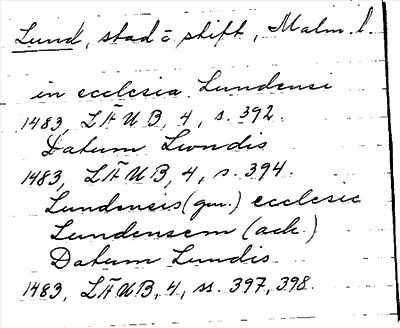 Lund, stad o stift, Malm. l.
in ecclesia Lundensi
1483, LÄUB, 4, s. 392.
Datum Lwndis
1483, LÄUB, 4, s. 394.
Lundensis (gen.) ecclesie
Lundensem (ack.)
Datum Lundis
1483, LÄUB, 4, ss. 397, 398.